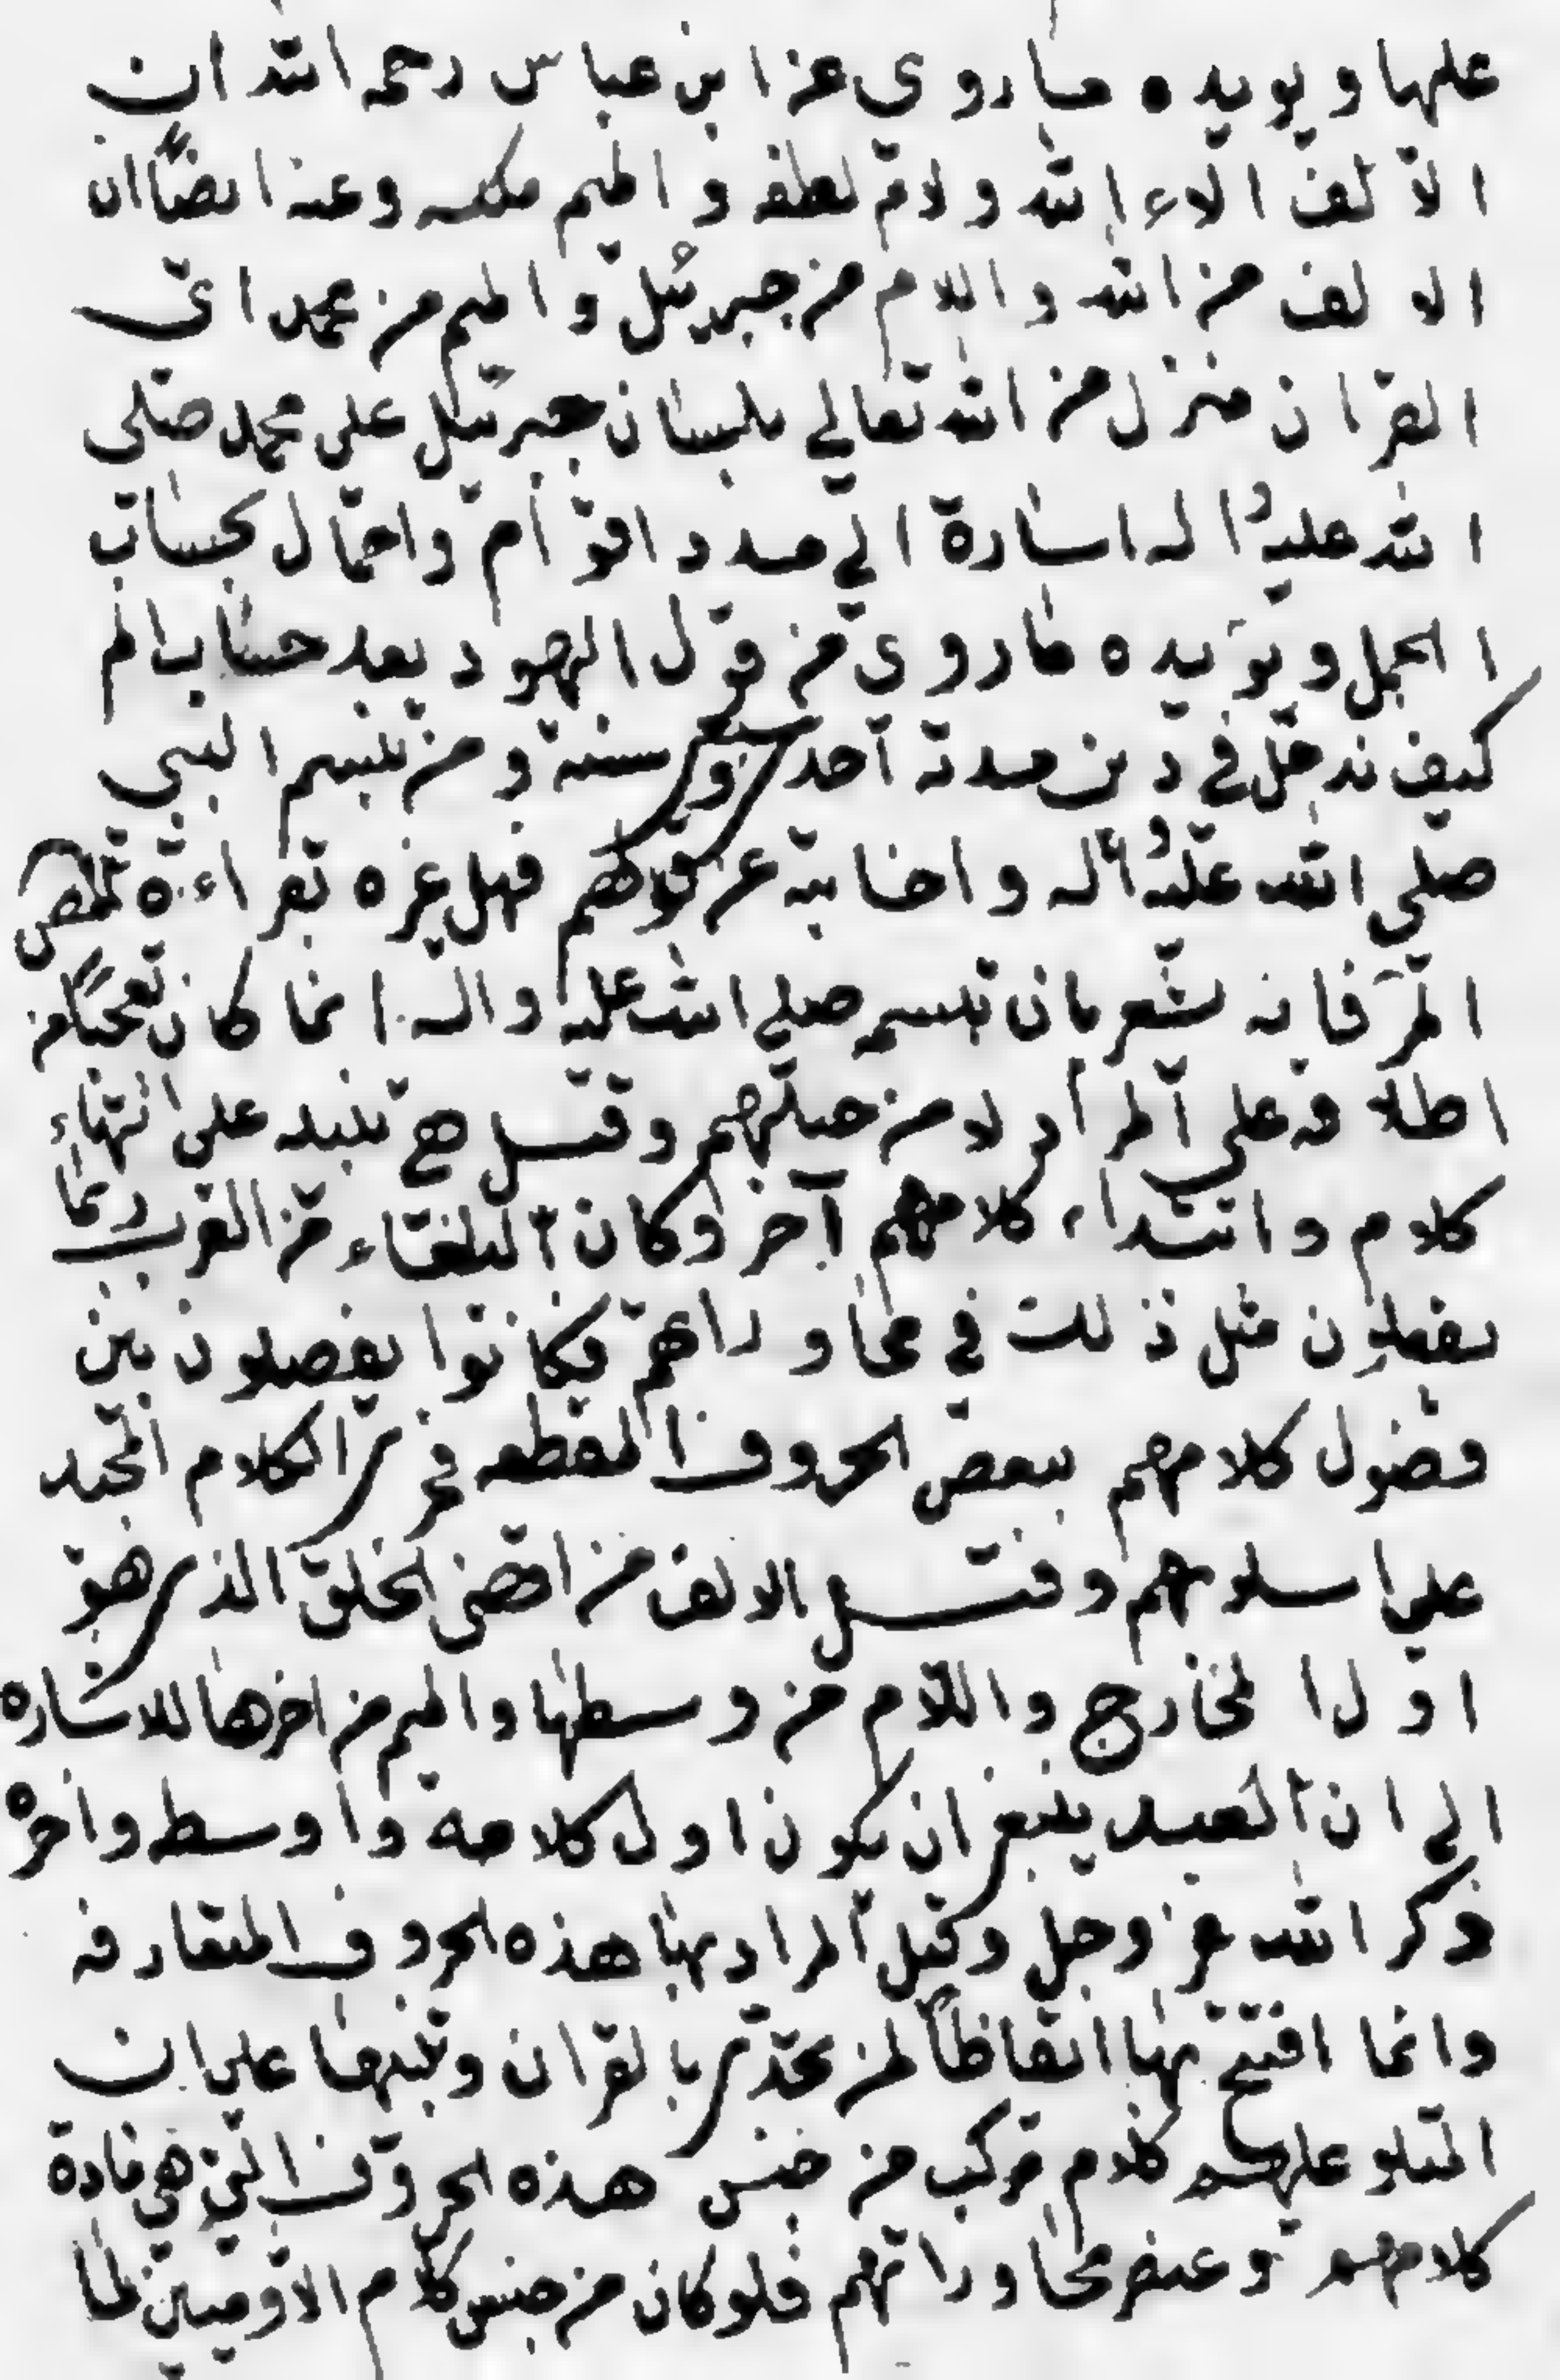 عليها ويويده ما روي عن ابن عباس رحمه الله ان
الالف الاء الله ولام لطفه والميم ملكه وعنه ايضًا ان
الالف من الله واللام من جبرئيل والميم من محمد اى
القران منزل من الله تعالى بلسان جبرئيل على محمد صلى
الله عليه واله اشارة الى مدد اقوام واجال بحساب
الجمل ويؤيده ما روى من قول اليهود بعد حساب الم
كيف ندخل في دين مدته احدى وسبعين سنة ومن تبسم النبى
صلى الله عليه واله واجابته عن قولهم فهل غيره بقراءة المص
المر فانه يشعر بان تبسمه صلى الله عليه واله انما كان تعجبًا من
اطلاقه على المراد لا من جهلهم وقيل هي تنبيه على انتهاء
كلام وابتداء كلامهم آخر وكان البلغاء من العرب ربما
يفعلون مثل ذلك في محاوراهم فكانوا يفصلون بين
فضول كلامهم ببعض الحروف المقطعه فجرى الكلام المجيد
على اسلوبهم وقيل الالف من اقصى الحلق الذي هو
اول المخارج واللام من وسطها والميم من اخرها للاشاره
الى ان العبد ينبغي ان يكون اول كلامه واوسطه واخره
ذكر الله عز وجل وقيل المراد بها هذه الحروف المتعارفه
وانما افتتح بها ايقاظاً لمن تحدى بالقران وتنبيها على ان
المتلو عليهم كلام مركب من جنس هذه الحروف التي هي مادة
كلامهم وعنصر محاوراتهم فلو كان من جنس كلام الادميين لما